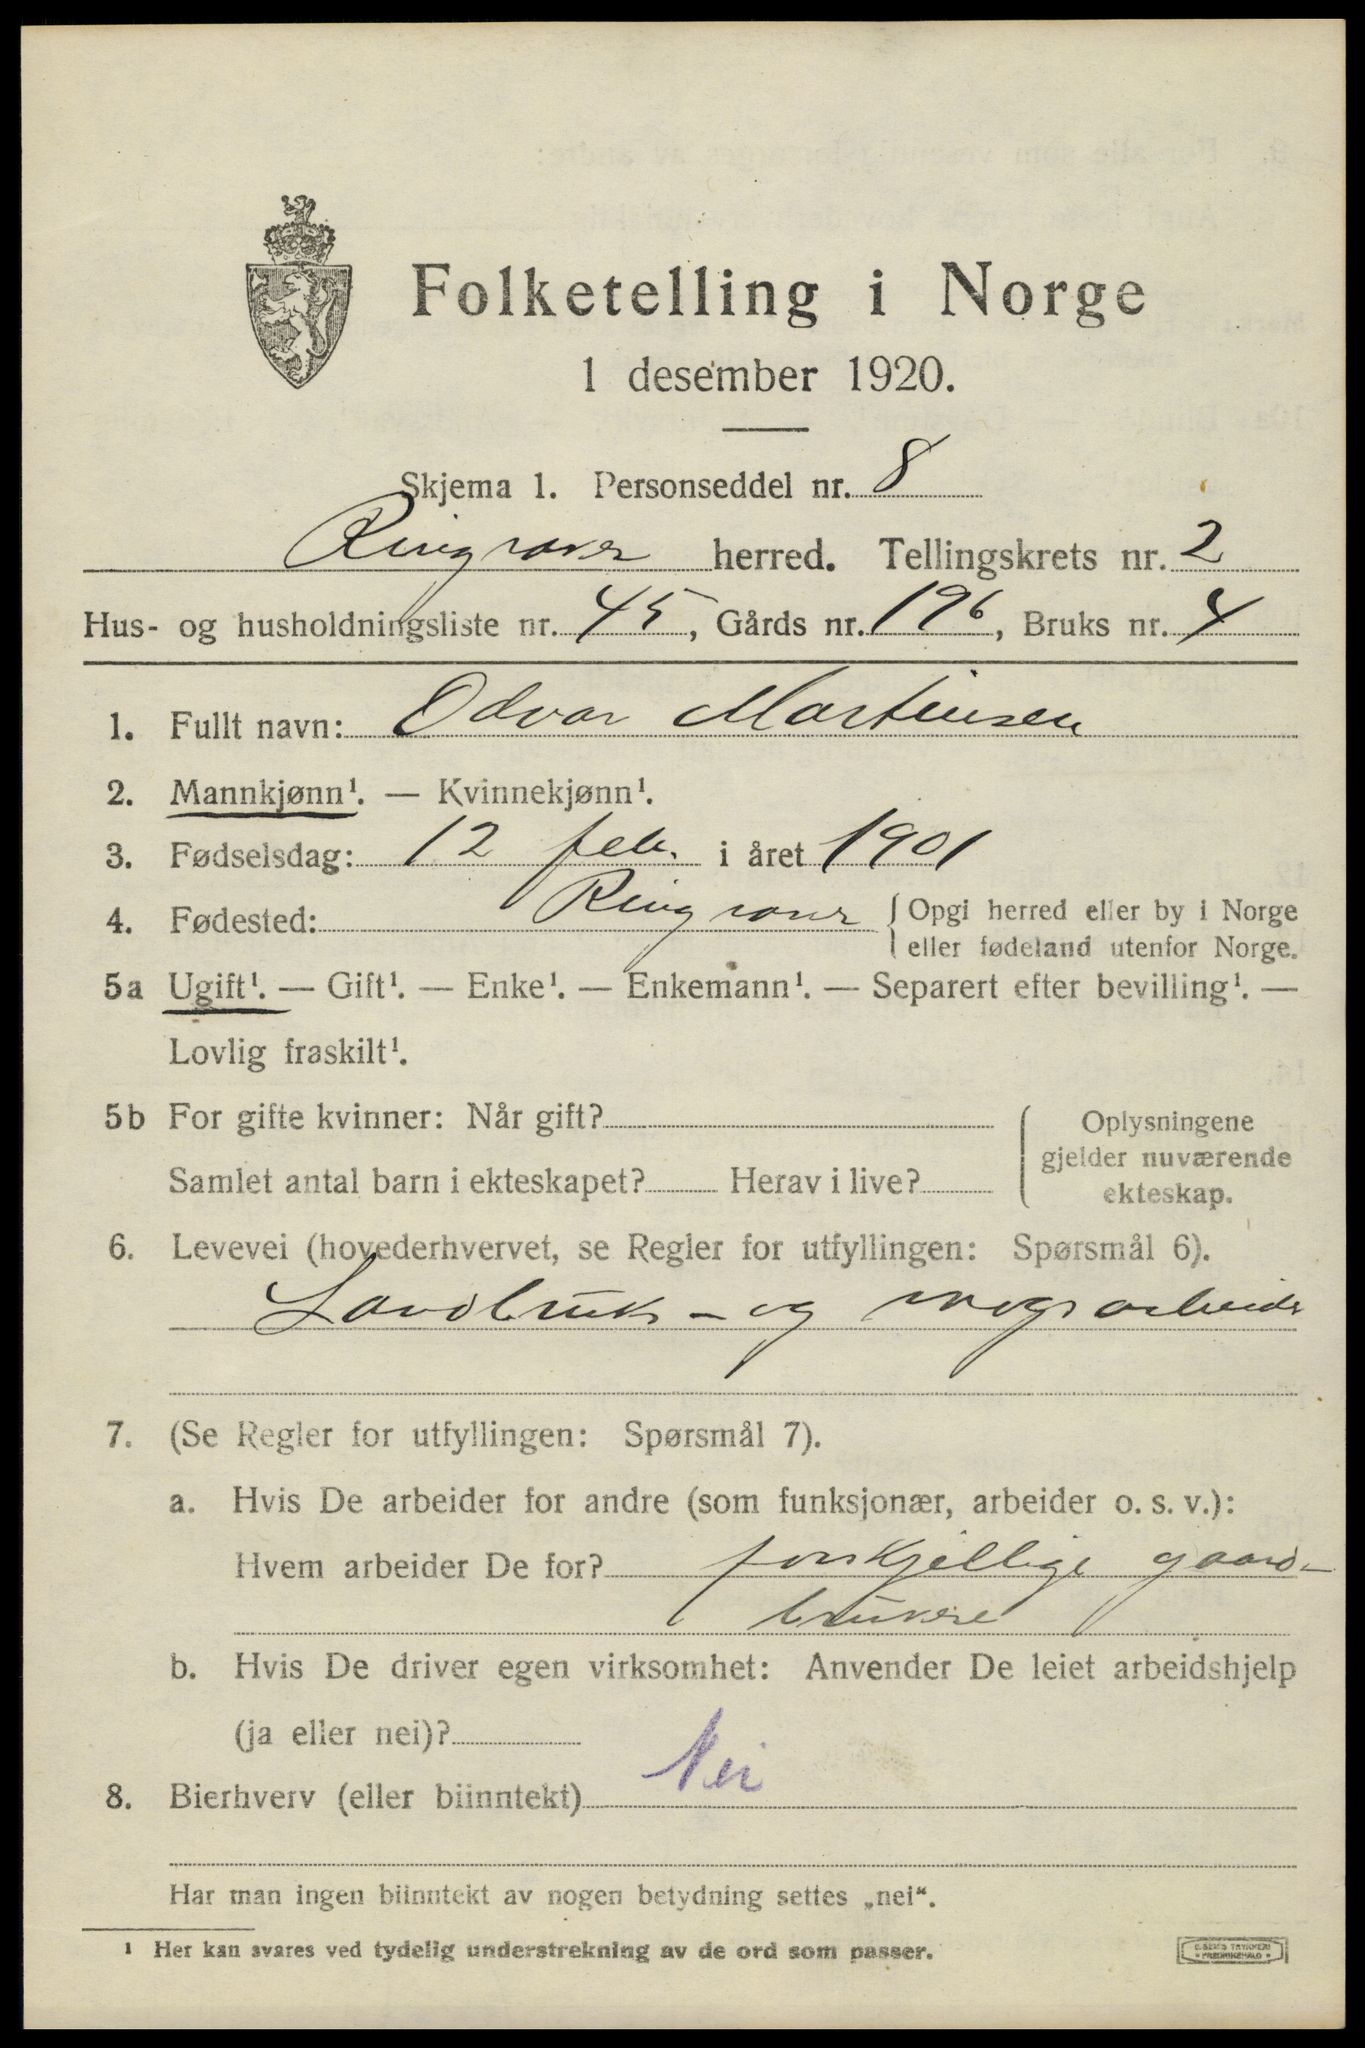 Folketelling i Norge
1 desember 1920.
Skjema 1. Personseddel nr. 8
Ringsaker herred. Tellingskrets nr. 2
Hus- og husholdningsliste nr. 45, Gårds nr. 196, Bruks nr. 4
1. Fullt navn: Odvar Martinsen
2. Mannkjønn¹. — Kvinnekjønn¹.
3. Fødselsdag: 12 feb. i året 1901
4. Fødested: Ringsaker { Opgi herred eller by i Norge
eller fødeland utenfor Norge.
5a Ugift¹. — Gift¹. — Enke¹. — Enkemann¹. — Separert efter bevilling¹. —
Lovlig fraskilt¹.
5b For gifte kvinner: Når gift?
Samlet antal barn i ekteskapet? Herav i live?
Oplysningene
gjelder nuværende
ekteskap.
6. Levevei (hovederhvervet, se Regler for utfyllingen: Spørsmål 6).
Landbruks- og skogsarbeide
7. (Se Regler for utfyllingen: Spørsmål 7).
a. Hvis De arbeider for andre (som funksjonær, arbeider o. s. v.):
Hvem arbeider De for? forskjellige gaard-
brukere
b. Hvis De driver egen virksomhet: Anvender De leiet arbeidshjelp
(ja eller nei)?
8. Bierhverv (eller biinntekt) Nei
Har man ingen biinntekt av nogen betydning settes „nei“.
¹ Her kan svares ved tydelig understrekning av de ord som passer.